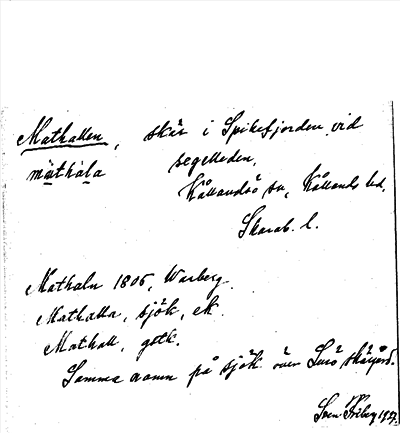 Mathallen, skär i Spikefjorden vid
mathala segelleden.
Kållandsö sn, Kållands hd,
Skarab. l.
Mathaln 1806, Warberg.
Mathalla, sjök, ek
Mathall, gstk.
Samma namn på sjök över Lurö skärgård.
Sven